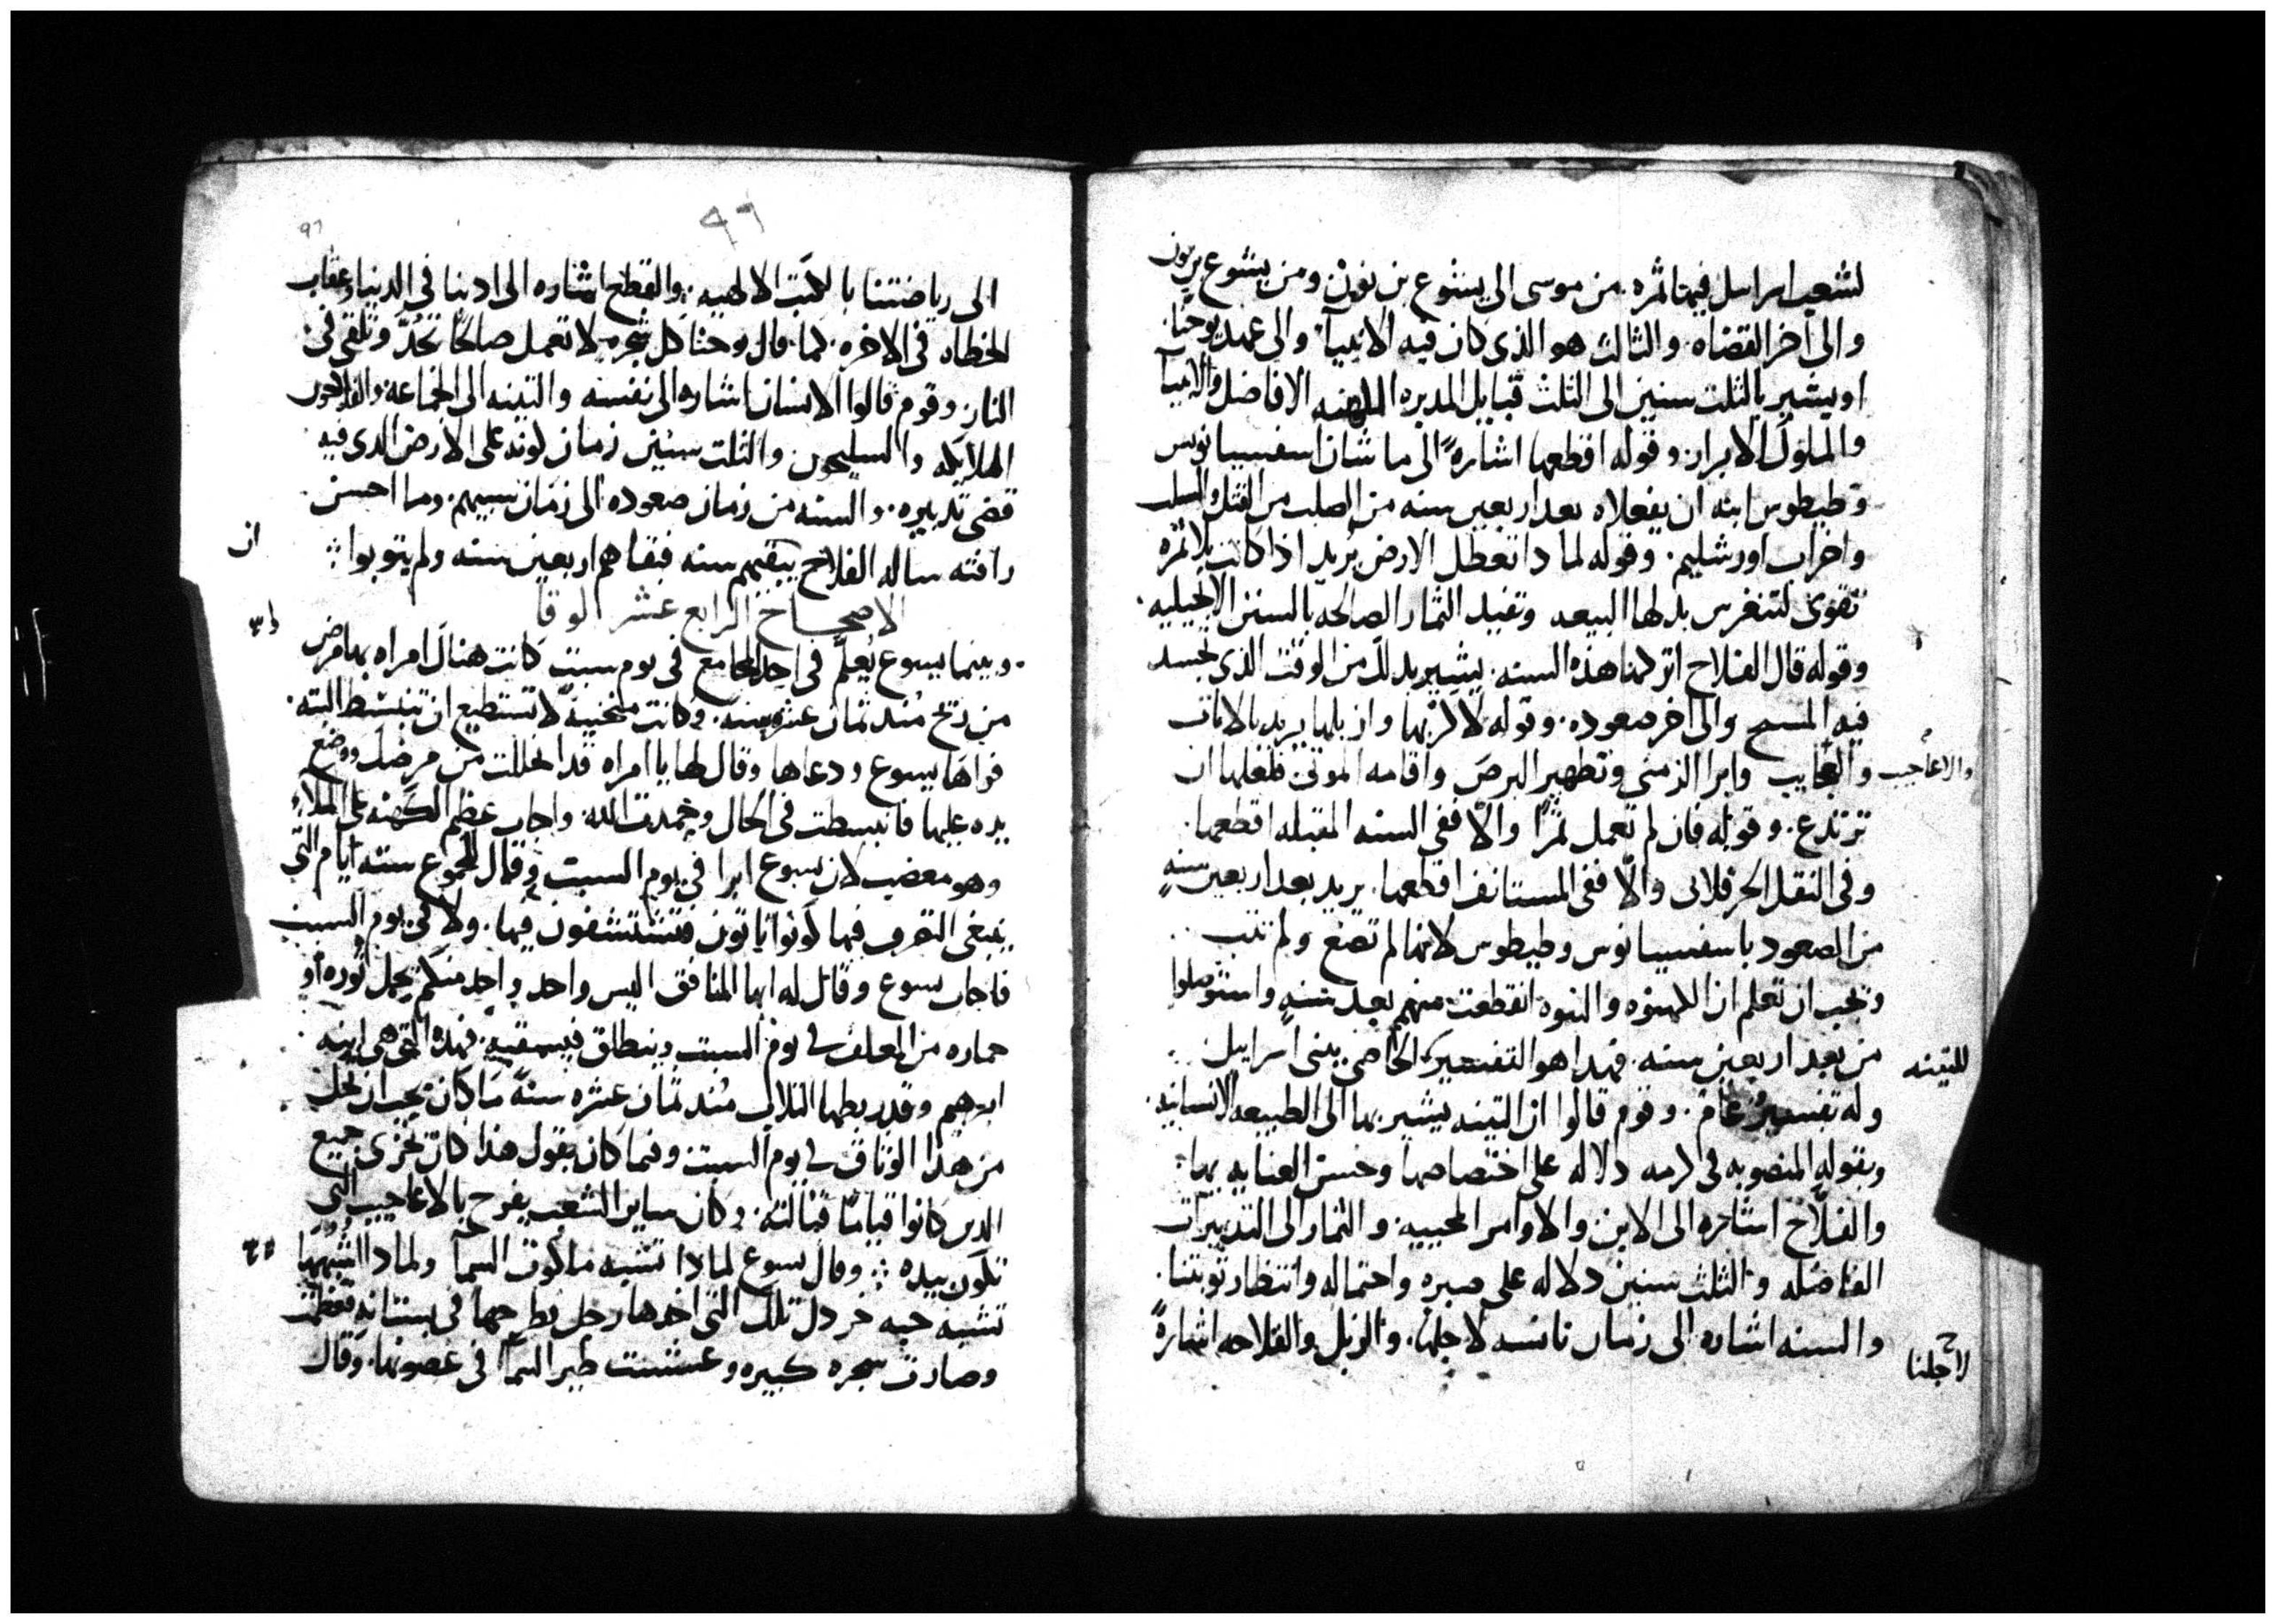 لشعب اسراىيل فيها ثمره. من موسى الى يشوع بن نون ومن يشوع بن نون
والى اخر القضاه. والثالث هو الذي كان فيه الانبيآ والى عهد يوحنا.
او يشير بالثلث سنين الى الثلث قبايل المدبره الكهنه الافاضل والانبيآ
والملوك الابرار. وقوله اقطعها اشارهً الى ما شان اسفسيانوس
وطيطوس ابنه ان يفعلاه بعد اربعين سنه من الصلب من القتل والسلب
واخراب اورشليم. وقوله لماذا تعطل الارض يُريد اذا كانت بلا ثمره
تقوى لتنغرس بدلها البيعه وتفيد الثمار الصالحه بالسنن الانجيليه.
وقوله قال الفلاح اتركها هذه السنه. يشير بذلك من الوقت الذي تجسد
فيه المسيح والى اخر صعوده. وقوله لاكربها وازبلها يريد بالايات
والعجايب وابرا الزمنى وتطهير البرص واقامه الموتى فلعلها ان
والاعاجيب
ترتدع. وقوله فان لم تعمل ثمرًا والّا ففي السنه المقبله اقطعها.
وفي النقل الحرقلاني والّا ففي المستانف اقطعها. يريد بعد اربعين سنهٍ
من الصعود باسفسيانوس وطيطوس لانها لم تصنع ولم تتب
ويجب ان تعلم ان الكهنوه والنبوه انقطعت منهم بعد سنهٍ واستوصلوا
من بعد اربعين سنه. فهذا هو التفسير الخاص ببني اسراييل
للتينه
وله تفسيرٌ عام. وقوم قالوا ان التينه يشير بها الى الطبيعه الانسانيه.
وبقوله المنصوبه في كرمه دلاله على اختصاصها وحسن العنايه بها.
والفلّاح اشاره الى الابن والاوامر المحييه. والثمار الى التدبيرات
الفاضله والثلث سنين دلاله على صبره واحتماله وانتظار توبتنا.
والسنه اشاره الى زمان تانسه لاجلها. والزبل والفلاحه اشارهً
لاجلنا
٩٦
٩٦
الى رياضتنا بالكتب الالهيه. والقطع اشاره الى ادبنا في الدنيا وعقاب
الخطاه في الاخره. كما قال يوحنا كل شجره لا تعمل صالحًا تُجدّ وتلقى في
النار. وقوم قالوا الانسان اشاره الى نفسه والتينه الى الجماعه والفلاحون
الملايكه والسليحون والثلث سنين زمان كونه على الارض الذي فيه
قضى تدبيره. والسنه من زمان صعوده الى زمان سبيهم. وما احسن
ان
رافته ساله الفلاح يبقيهم سنه فبقاهم اربعين سنه ولم يتوبوا
الاصحاح الرابع عشر لوقا
وبينما يسوع يُعلّم في احد المجامع في يوم سبت كانت هناك امراه بها مرض
من ريح مُنذ ثمان عشره سنه. وكانت منحنيةً لا تستطيع ان تنبسط البته.
فراها يسوع ودعاها وقال لها يا امراه قد انحللت من مرضك ووضع
يده عليها فانبسطت في الحال وحمدت الله. واجاب عظم الكهنه على الملاء
وهو مغضب لان يسوع ابرا في يوم السبت وقال للجموع سته ايام التي
ينبغي التصرف فيها كونوا تاتون فتستشفون فيها. ولا في يوم السبت
فاجاب يسوع وقال له ايها المنافق اليس واحد واحد منكم يحل ثوره او
حماره من المعلف في يوم السبت وينطلق فيسقيه. فهذه التي هي ابنه
ابرهيم وقد ربطها الثلاب مُنذ ثمان عشره سنةً ما كان يجب ان تحل
من هذا الوثاق في يوم السبت وفيما كان يقول هذا كان يخزى جميع
الذين كانوا قيامًا قبالته. وكان ساير الشعب يفرح بالاعاجيب التي
تكون بيده وقال يسوع لماذا تشبه ملكوت السمآ ولماذا اشبهها
تشبه حبه خردل تلك التي اخذها رجل طرحها في بستانه فعظمت
وصارت شجره كبيره وعششت طير السمآ في غصونها. وقال